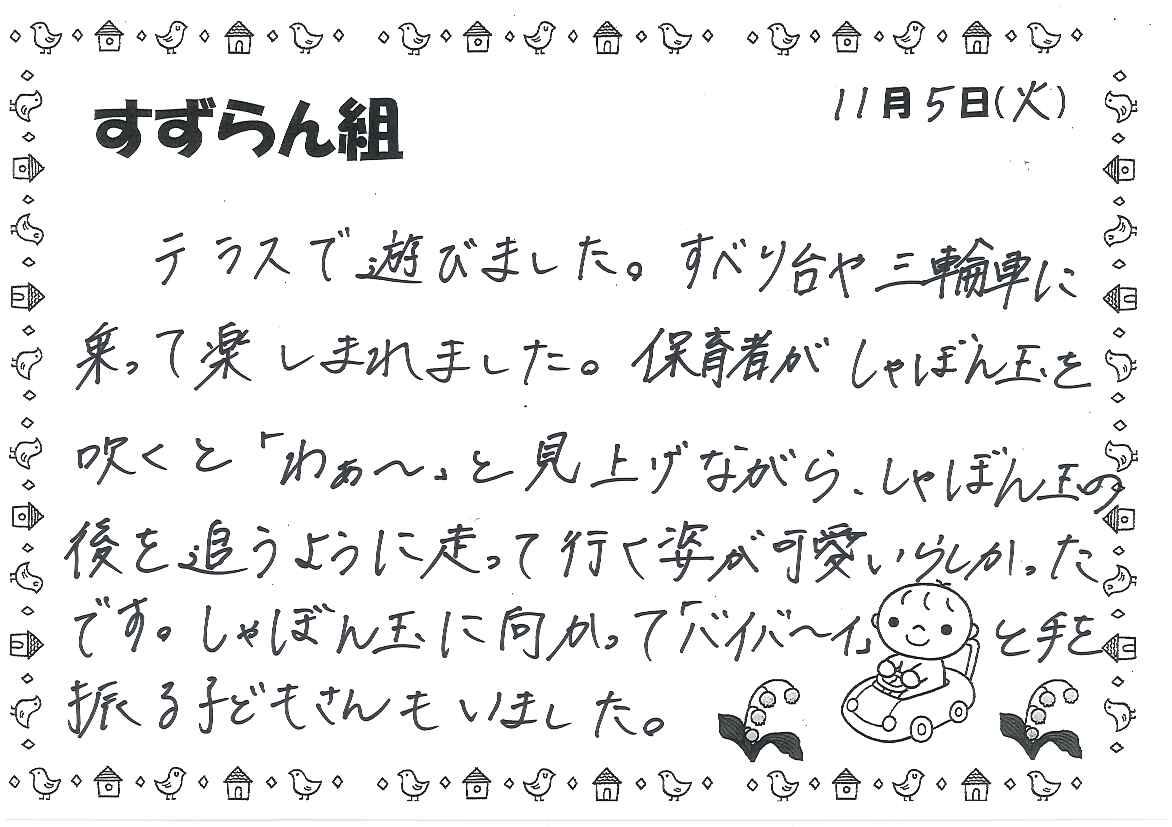 すずらん組
11月5日(火)
テラスで遊びました。すべり台や三輪車に
乗って楽しまれました。保育者がしゃぼん玉を
吹くと「わぁ〜」と見上げながら、しゃぼん玉の
後を追うように走って行く姿が可愛いらしかった
です。しゃぼん玉に向かって「バイバ〜イ」と手を
振る子どもさんもいました。